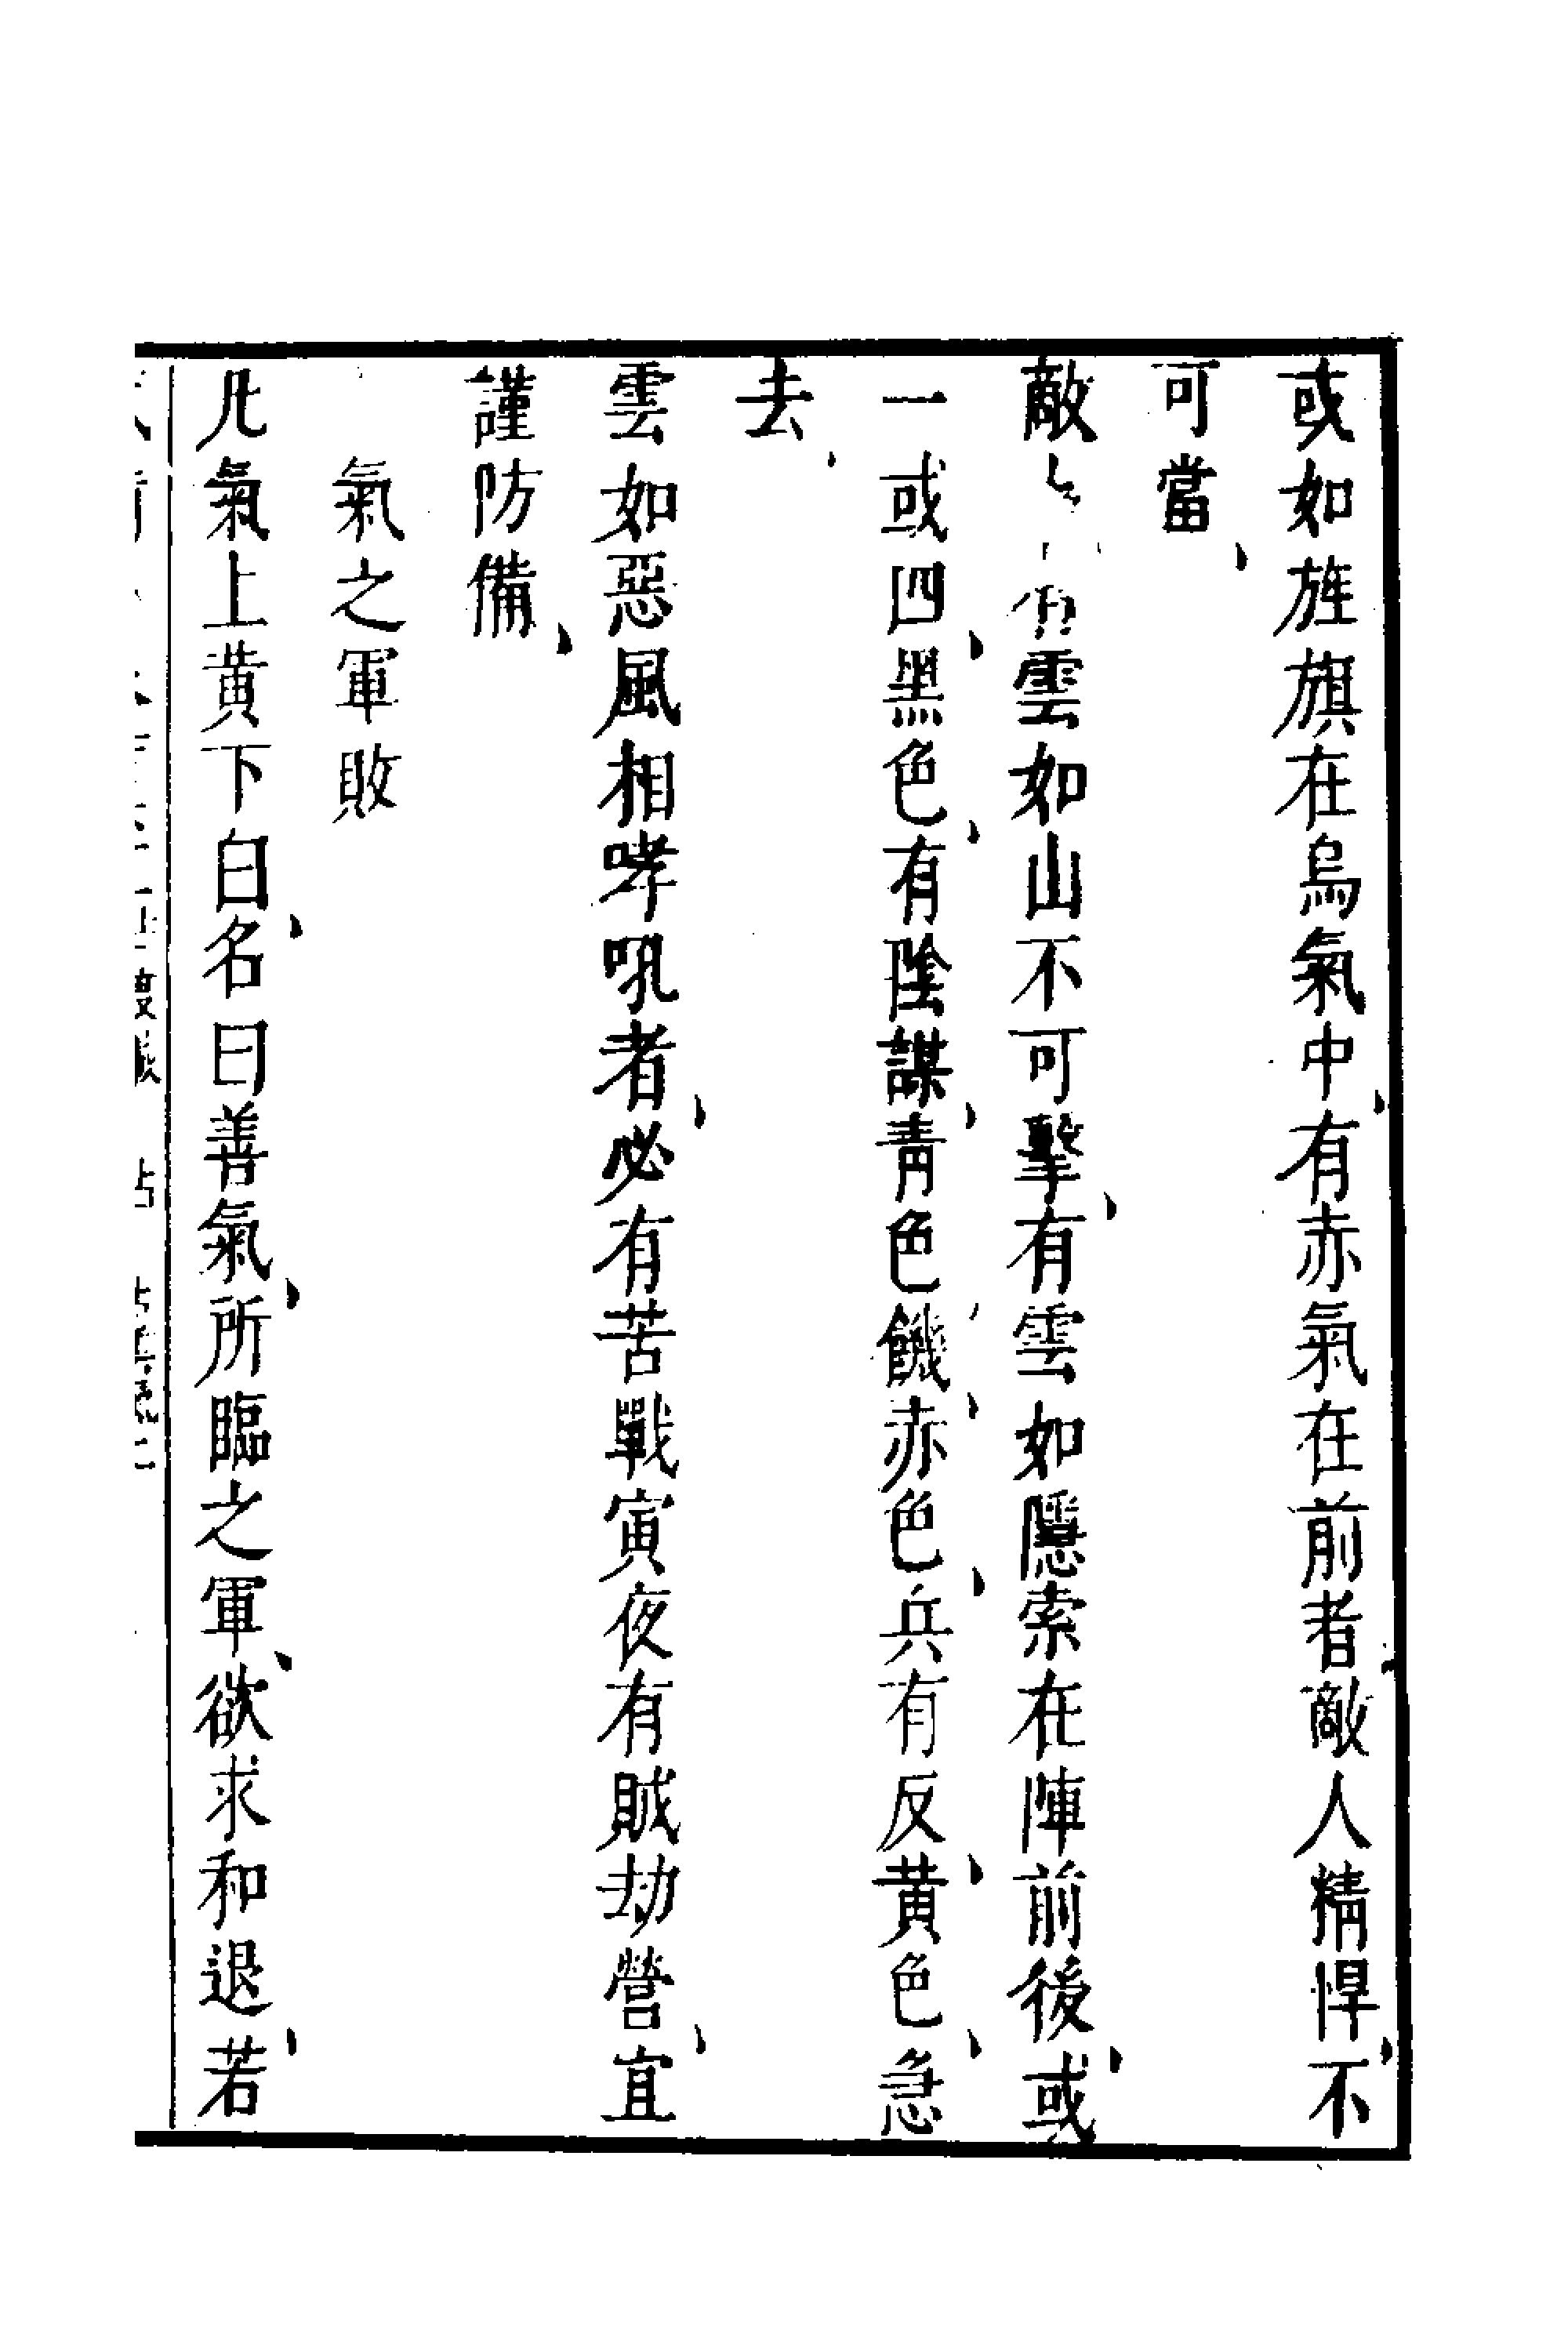 或如旌旗在烏氣中有赤氣在前者敵人精悍不
可當
敵 雲如山不可擊有雲如隱索在陣前後或
一或四黑色有陰謀青色饑赤色兵有反黃色急
去
雲如惡風相哮吼者必有苦戰寅夜有賊劫營宜
謹防備
氣之軍敗
凡氣上黃下白名曰善氣所臨之軍欲求和退若